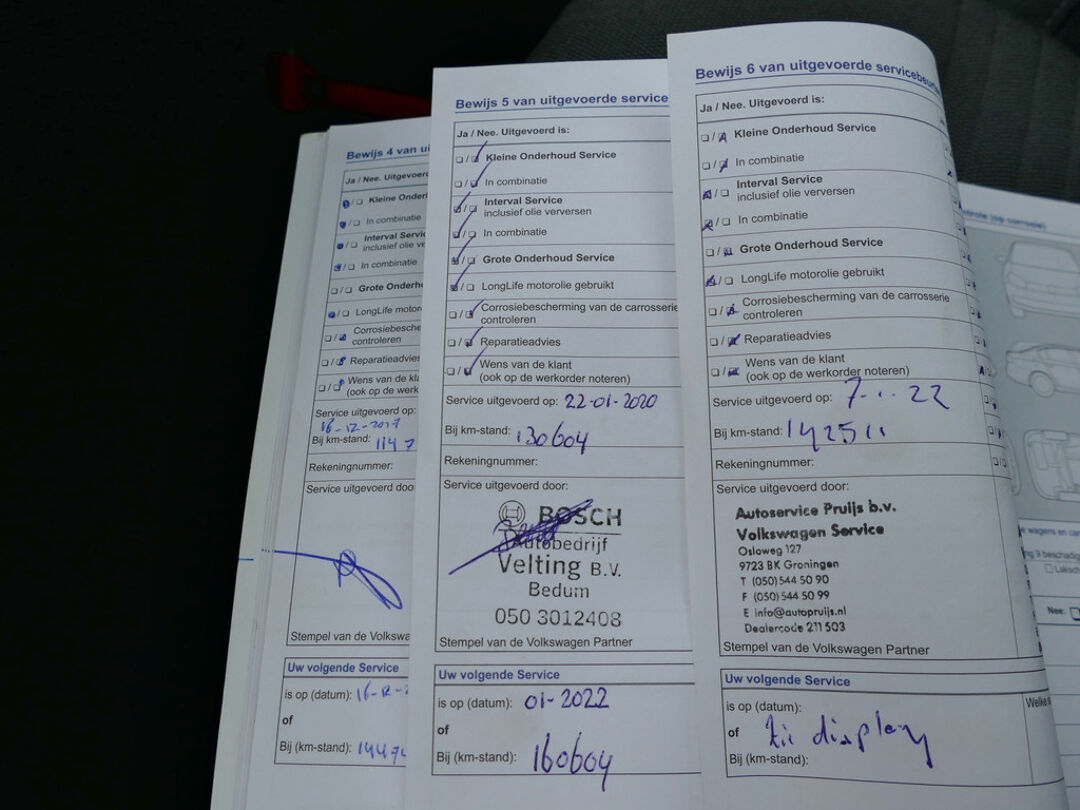 Bewijs 4 van
Ja / Nee. Uitgevoerd
Kleine
In combinatie
Interval
inclusief olie
In combinatie
Grote
LongLife
controleren
Reparatieadvies
Wens van de
(ook op de
Service uitgevoerd op:
16-12-2017
Bij km-stand: 1147
Rekeningnummer:
Service uitgevoerd
Stempel van de
Uw volgende Service
is op (datum): 16-12-
of
Bij (km-stand):
Bewijs 5 van uitgevoerde service
Ja / Nee. Uitgevoerd is:
Kleine Onderhoud Service
In combinatie
Interval Service
inclusief olie verversen
In combinatie
Grote Onderhoud Service
LongLife motorolie gebruikt
Corrosiebescherming van de carrosserie
controleren
Reparatieadvies
Wens van de klant
(ook op de werkorder noteren)
Service uitgevoerd op: 22-01-2020
Bij km-stand: 130604
Rekeningnummer:
Service uitgevoerd door:
BOSCH
Autobedrijf
Velting B.V.
Bedum
050 3012408
Stempel van de Volkswagen Partner
Uw volgende Service
is op (datum): 01-2022
of
Bij (km-stand): 160604
Bewijs 6 van uitgevoerde
Ja / Nee. Uitgevoerd is:
Kleine Onderhoud Service
In combinatie
Interval Service
inclusief olie verversen
In combinatie
Grote Onderhoud Service
LongLife motorolie gebruikt
Corrosiebescherming van de carrosserie
controleren
Reparatieadvies
Wens van de klant
(ook op de werkorder noteren)
Service uitgevoerd op:
Bij km-stand:
Rekeningnummer:
Service uitgevoerd door:
Autoservice Pruijs b.v.
Volkswagen Service
Osloweg 127
9723 BK Groningen
T (050) 544 50 90
F (050) 544 50 99
E info@autopruijs.nl
Dealercode 211 503
Stempel van de Volkswagen Partner
Uw volgende Service
is op (datum):
of zie display
Bij (km-stand):
Welke
(op corrosie)
wagens en
Nee: